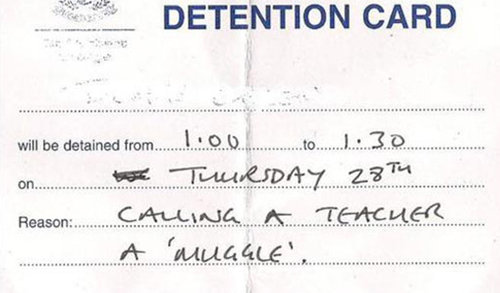 DETENTION CARD
will be detained from 1.00 to 1.30
on THURSDAY 28TH
Reason: CALLING A TEACHER
A 'MUGGLE'.